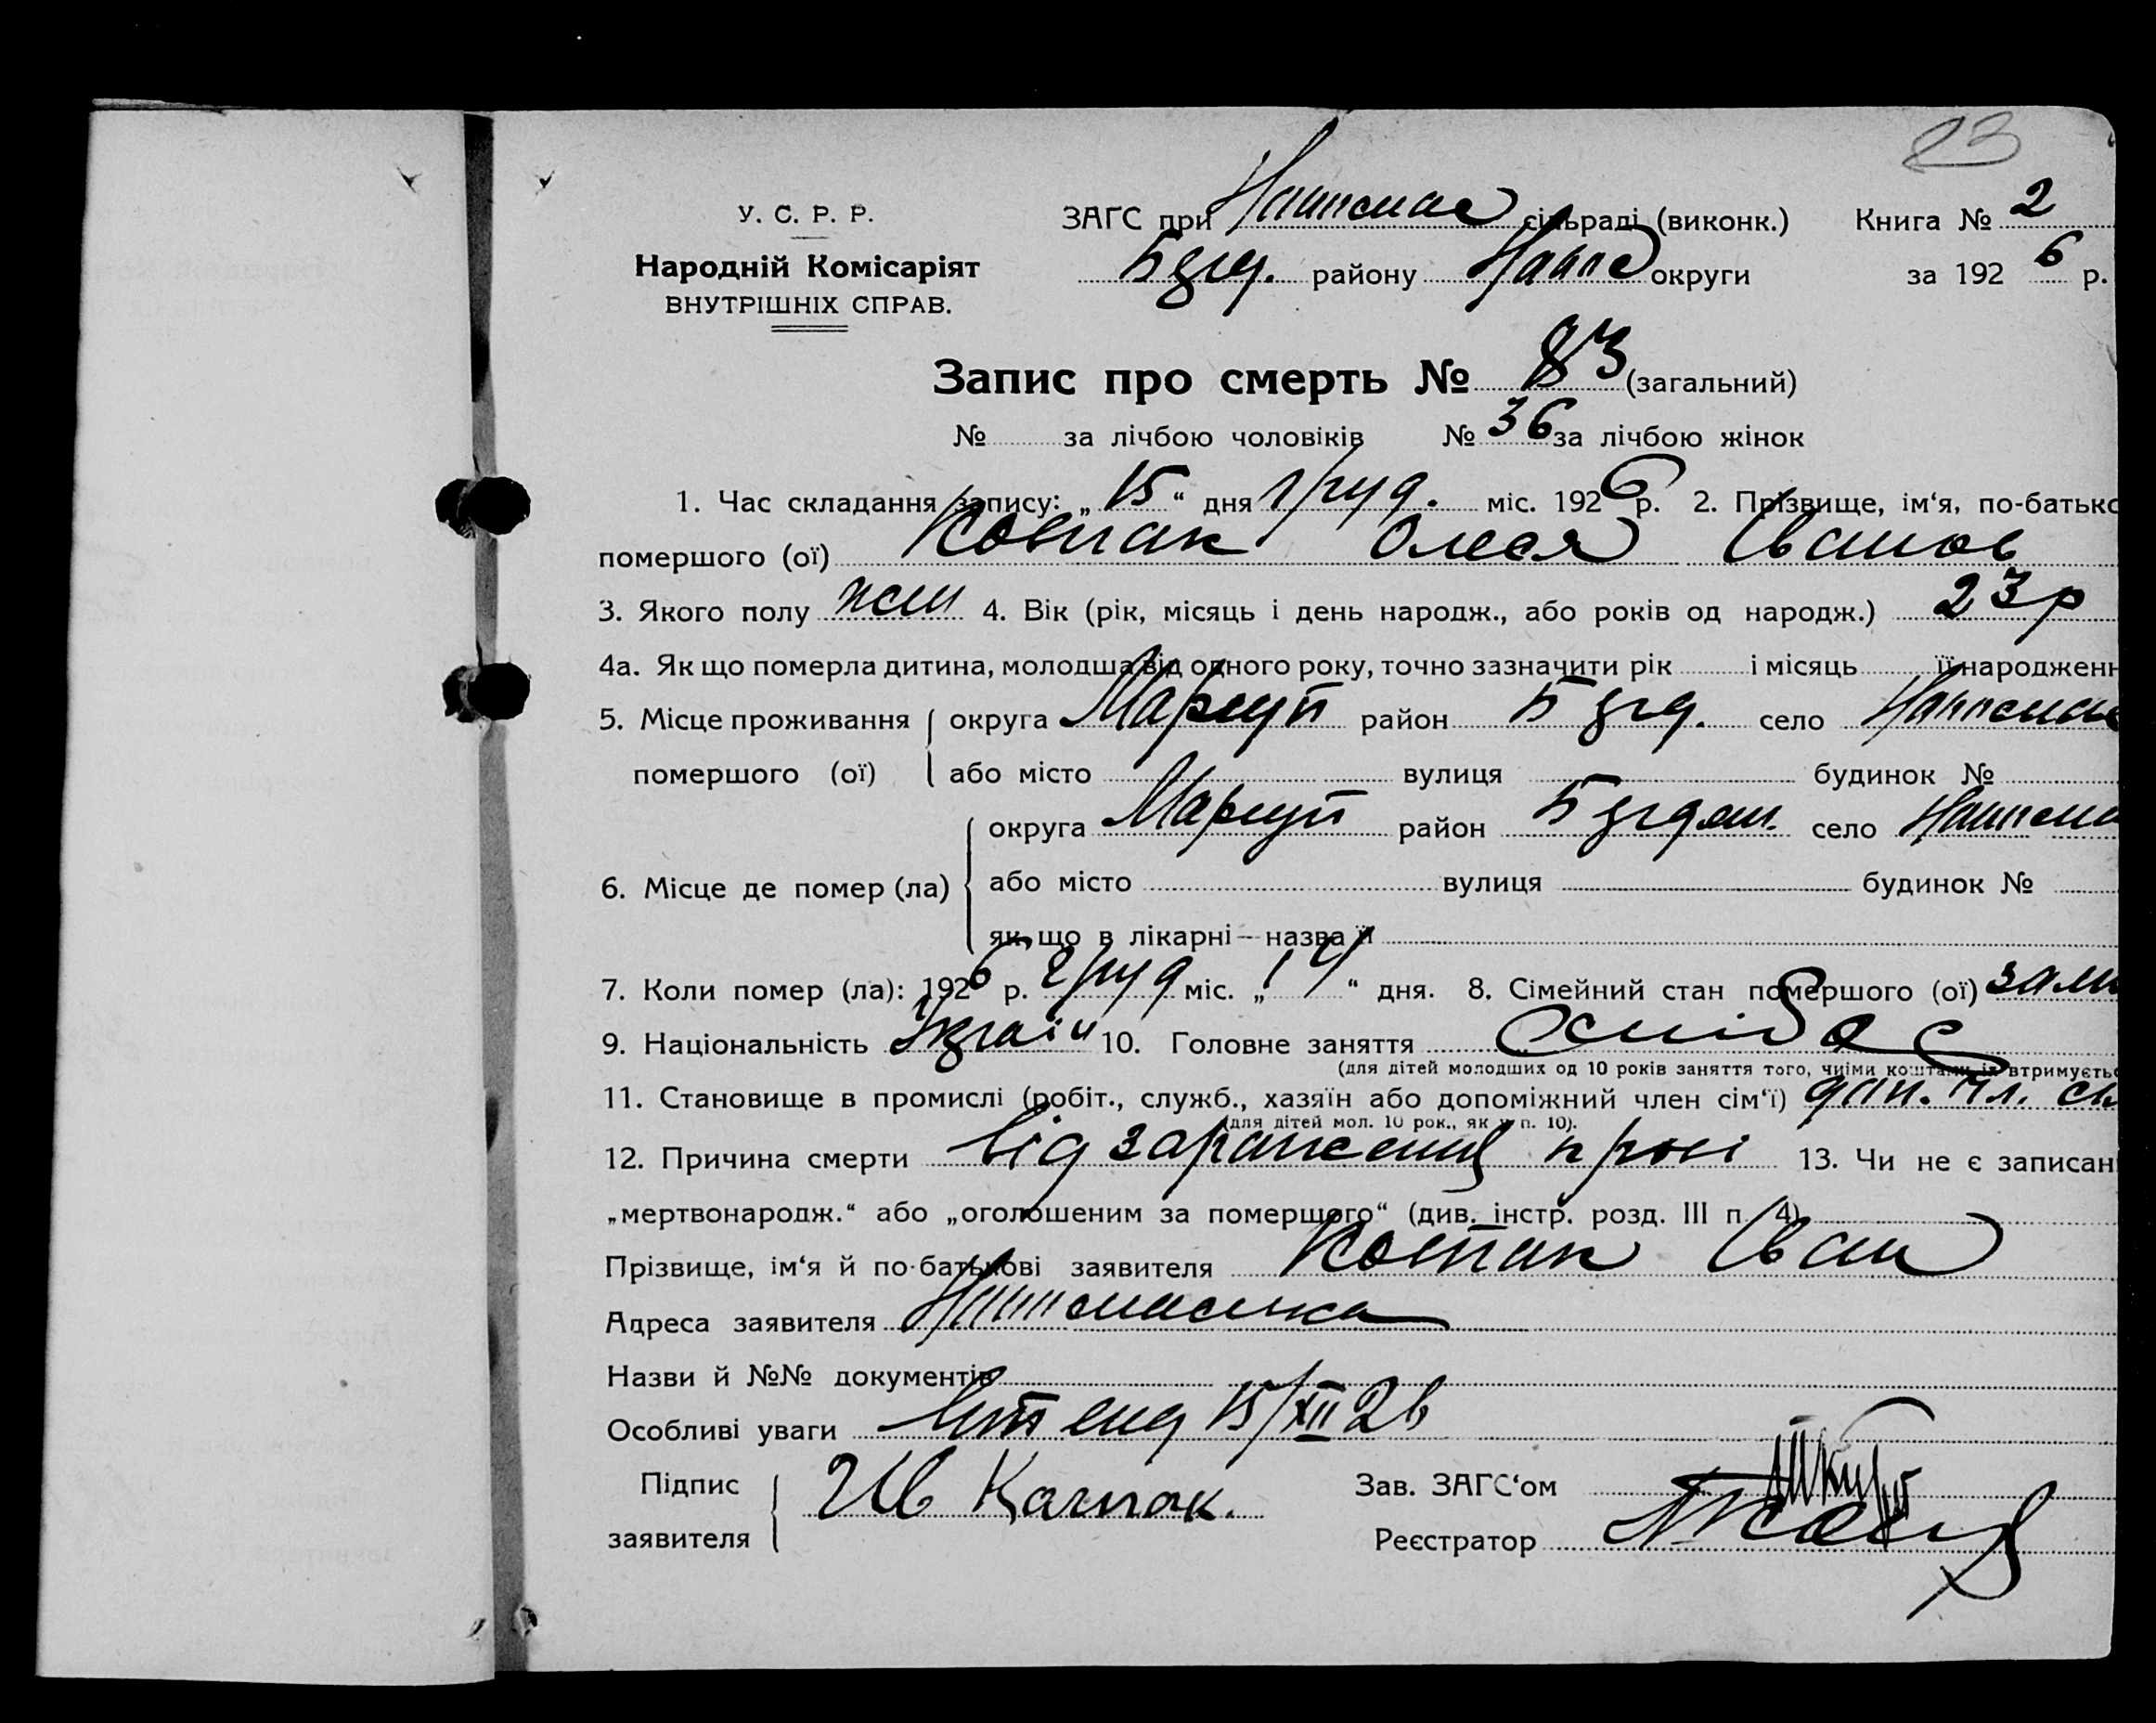 23
У. С. Р. Р.
Народній Комісаріят
ВНУТРІШНІХ СПРАВ.
ЗАГС при сільраді (виконк.) Книга № 2
району округи за 192 6 р.
Запис про смерть № 83 (загальний)
№ за лічбою чоловіків № 36 за лічбою жінок
1. Час складання запису: „ 15 “ дня груд. міс. 192 6 р. 2. Прізвище, ім‘я, по-батько
помершого (ої) Олеся Іванов
3. Якого полу жен 4. Вік (рік, місяць і день народж., або років од народж.) 23 р
4а. Як що померла дитина, молодша від одного року, точно зазначити рік і місяць її народженн
5. Місце проживання округа Маріуп район село
помершого (ої) або місто вулиця будинок №
округа Маріуп район село
6. Місце де помер (ла) або місто вулиця будинок №
як що в лікарні — назва її
7. Коли помер (ла): 192 6 р. груд міс. „ 14 “ дня. 8. Сімейний стан помершого (ої) зам
9. Національність Україн 10. Головне заняття
(для дітей молодших од 10 років заняття того, чиїми коштами їх втримуєтьс
11. Становище в промислі (робіт., служб., хазяїн або допоміжний член сім‘ї) доп. чл. см
(для дітей мол. 10 рок., як у п. 10).
12. Причина смерти від зараження крові 13. Чи не є записан
„мертвонародж.“ або „оголошеним за помершого“ (див. інстр. розд. III п. 4)
Прізвище, ім‘я й по-батькові заявителя Іван
Адреса заявителя
Назви й №№ документів
Особливі уваги 15/XII 26
Підпис
заявителя Ив
Зав. ЗАГС‘ом
Реєстратор